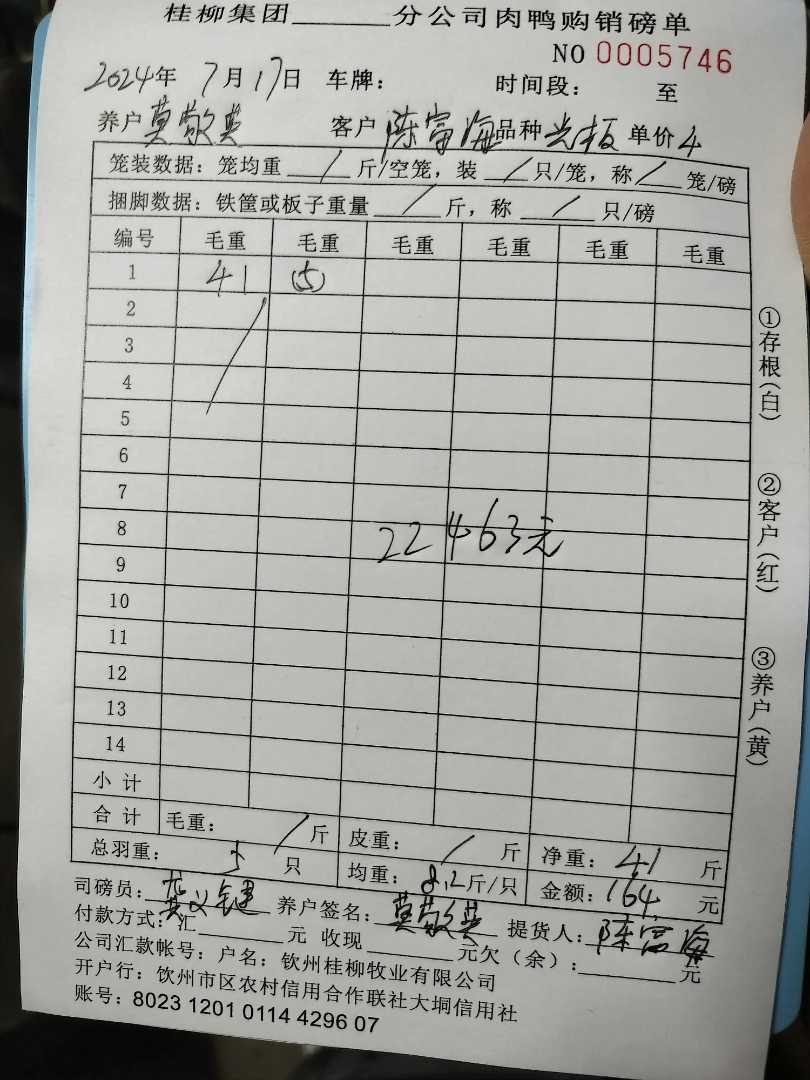 桂柳集团______分公司肉鸭购销磅单
NO 0005746
2024年 7月17日 车牌： 时间段： 至
养户 莫敬英 客户 陈富海 品种 光板 单价 4
笼装数据：笼均重 / 斤/空笼，装 / 只/笼，称 / 笼/磅
捆脚数据：铁筐或板子重量 / 斤，称 / 只/磅
编号 毛重 毛重 毛重 毛重 毛重 毛重
1 41 (5)
2
3
4
5
6
7
8 22463元
9
10
11
12
13
14
小计
合计 毛重： / 斤 皮重： / 斤 净重：41 斤
总羽重： 5 只 均重：8.2斤/只 金额：164 元
司磅员： 养户签名：莫敬英 提货人：陈富海
付款方式：汇______元 收现______元欠（余）：______元
公司汇款帐号：户名：钦州桂柳牧业有限公司
开户行：钦州市区农村信用合作联社大垌信用社
账号：8023 1201 0114 4296 07
①存根（白）
②客户（红）
③养户（黄）